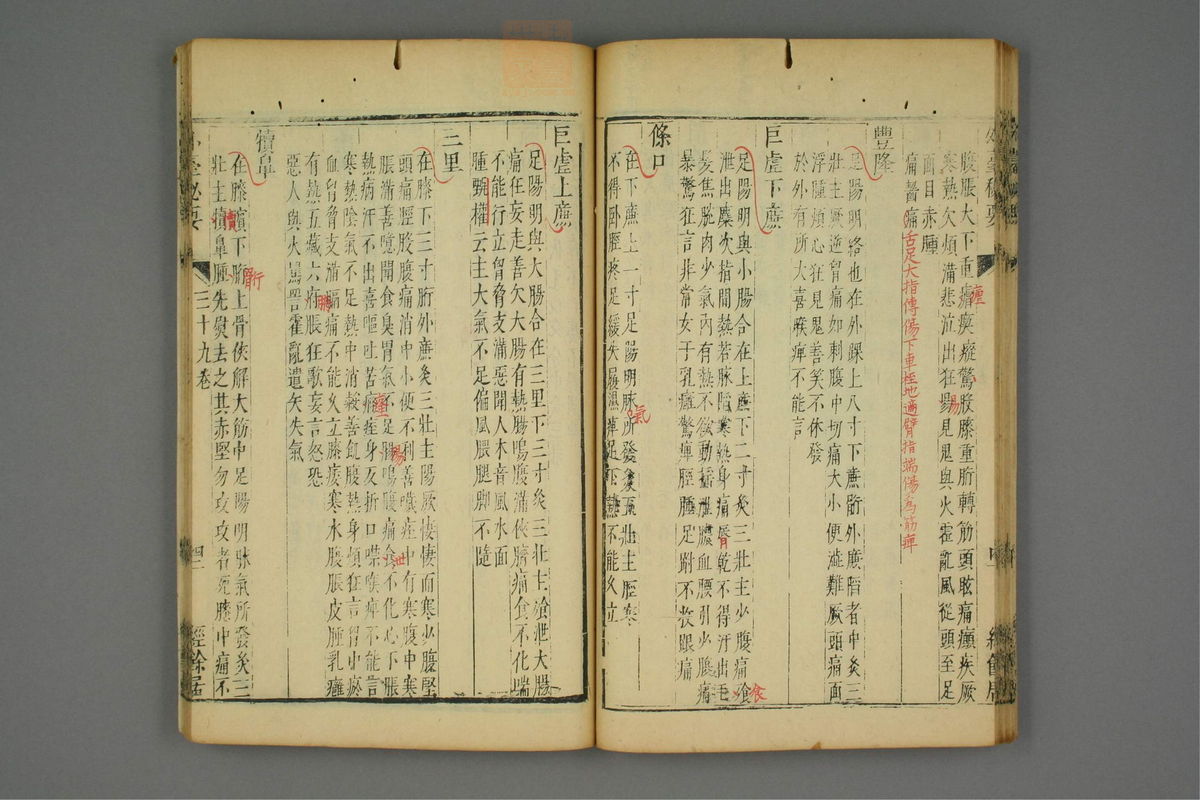 腹脹大下重㿉瘈瘲驚股膝重胻轉筋頭眩痛癲疾厥
寒熱欠煩滿悲泣出狂見鬼與火霍亂風從頭至足
面目赤腫
痛齧舌足大指傳傷下車挃地適臂指端傷為筋痺
豐隆
足陽明絡也在外踝上八寸下廉胻外廉陷者中灸三
壯主厥逆胸痛如刺腹中切痛大小便澁難厥頭痛面
浮腫煩心狂見鬼善笑不休發
於外有所大喜喉痺不能言
巨虛下廉
足陽明與小腸合在上廉下二寸灸三壯主少腹痛飧
泄出麋次指間熱若脉陷寒熱身痛脣乾不得汗出毛
髮焦脫肉少氣內有熱不欲動搖泄膿血腰引少腹痛
暴驚狂言非常女子乳癰驚痺脛腫足跗不收跟痛
條口
在下廉上一寸足陽明脉氣所發灸三壯主脛寒
不得臥脛疼足緩失履濕痺足下熱不能久立
巨虛上廉
足陽明與大腸合在三里下三寸灸三壯主飧泄大腸
痛狂妄走善欠大腸有熱腸鳴腹滿俠臍痛食不化喘
不能行立胸脅支滿惡聞人木音風水面
腫甄權云主大氣不足偏風腲腳不隨
三里
在膝下三寸胻外廉灸三壯主陽厥悽悽而寒少腹堅
頭痛脛股腹痛消中小便不利善噦痓中有寒腹中寒
脹滿善噫聞食臭胃氣不足腸鳴腹痛食不化心下脹
熱病汗不出喜嘔吐苦痓身反折口噤喉痺不能言
寒熱陰氣不足熱中消穀善飢腹熱身煩狂言胸中瘀
血胸脅支滿膈痛不能久立膝痿寒水腹脹皮腫乳癰
有熱五藏六府脹狂歌妄言怒恐
惡人與火罵詈霍亂遺矢失氣
犢鼻
在膝臏下胻上骨俠解大筋中足陽明脉氣所發灸三
壯主犢鼻腫先熨去之其赤堅勿攻攻者死膝中痛不
三十九卷
四二
經餘居